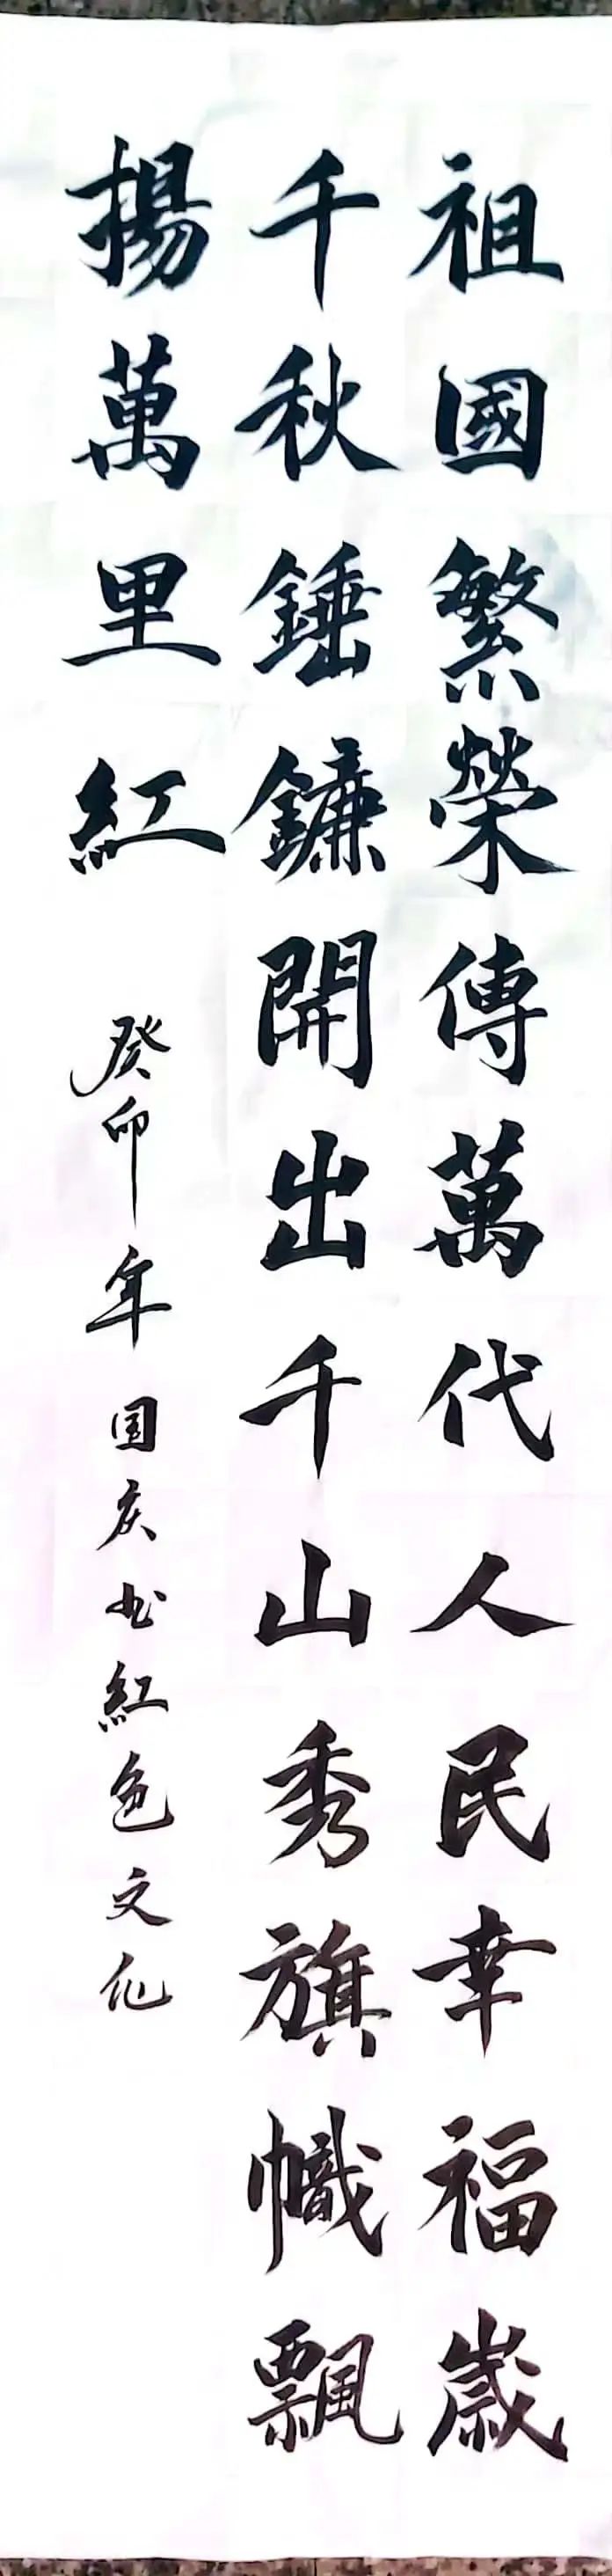 祖國繁榮傳萬代人民幸福歲
千秋錘鐮開出千山秀旗幟飄
揚萬里紅
癸卯年国庆书紅色文化